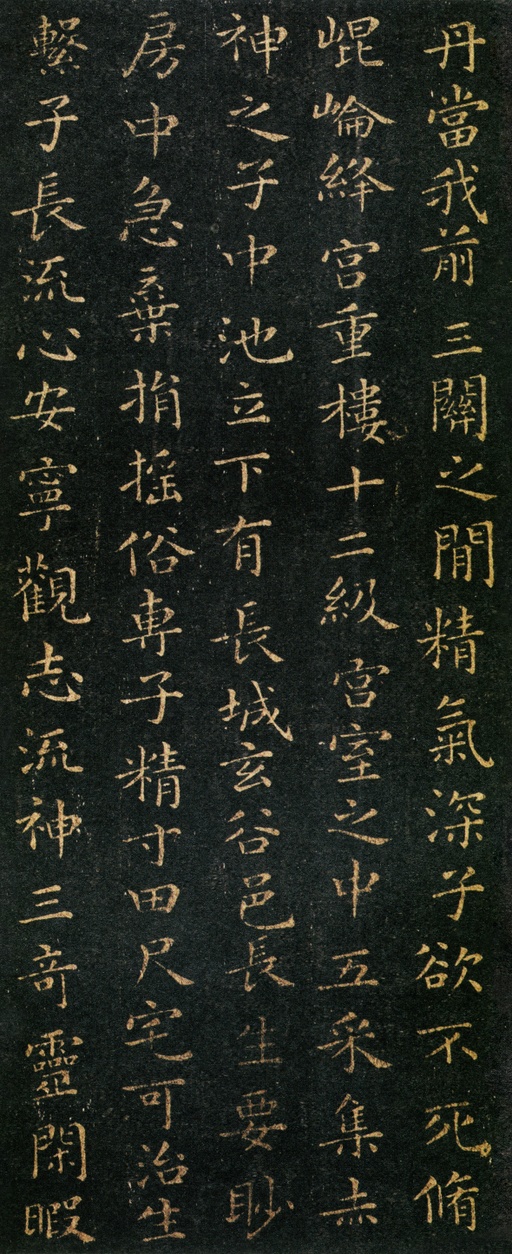 丹當我前三關之間精氣深子欲不死脩
崐崘絳宮重樓十二級宮室之中五采集赤
神之子中池立下有長城玄谷邑長生要眇
房中急棄捐搖俗専子精寸田尺宅可治生
繋子長流心安寧觀志流神三奇靈閑暇